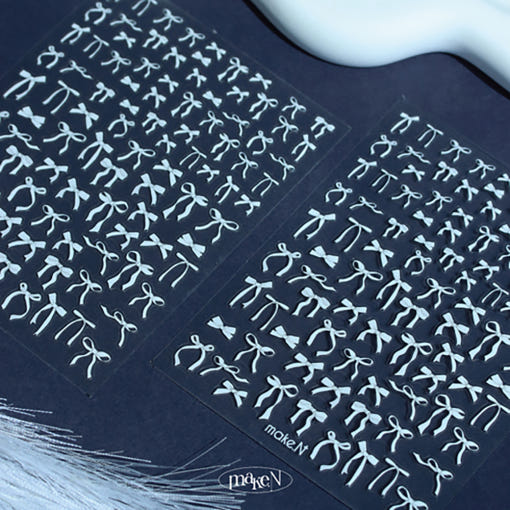 make.N
make.N